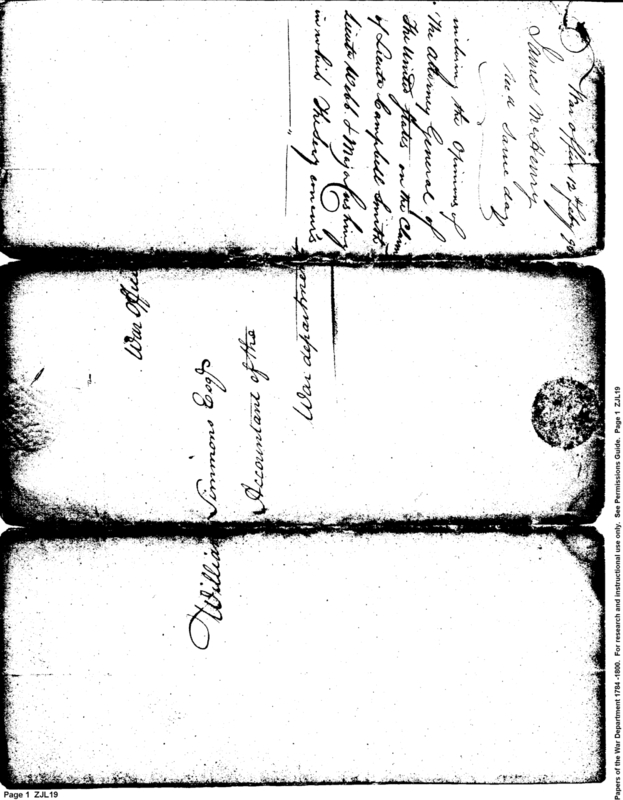 War office 12th July 98
James McHenry
recd same day
enclosing the Opinions of
the Attorney General of
The United States on the Claims
of Lieuts Campbell Smith
Lieuts Webb & Major Cushing
in which Theory concurs
War Office
William Simmons Esqr
Accountant of the
War department
Papers of the War Department 1784 -1800. For research and instructional use only. See Permissions Guide. Page 1 ZJL19
Page 1 ZJL19